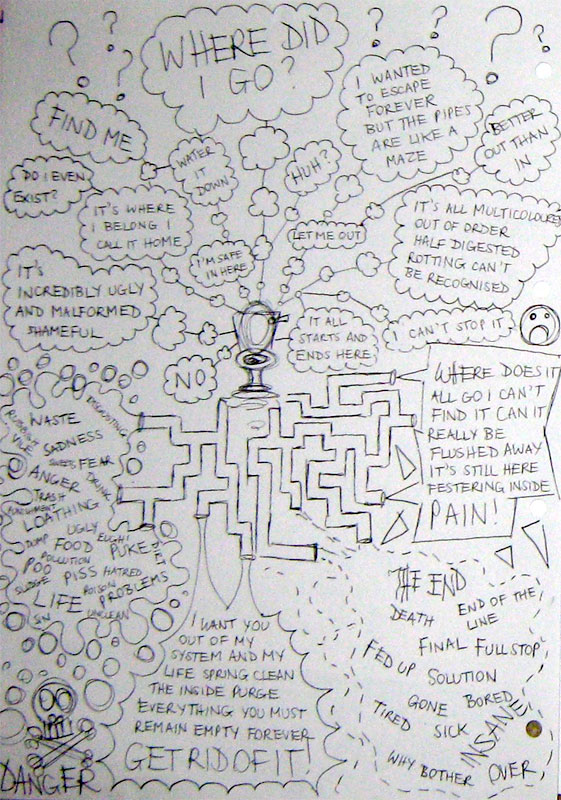 WHERE DID
I GO?
FIND ME
WATER
IT
DOWN
HUH?
I WANTED
TO ESCAPE
FOREVER
BUT THE PIPES
ARE LIKE A
MAZE
BETTER
OUT THAN
IN
DO I EVEN
EXIST?
IT'S WHERE
I BELONG I
CALL IT HOME
I'M SAFE
IN HERE
LET ME OUT
IT'S ALL MULTICOLOURED
OUT OF ORDER
HALF DIGESTED
ROTTING CAN'T
BE RECOGNISED
IT'S
INCREDIBLY UGLY
AND MALFORMED
SHAMEFUL
NO
IT ALL
STARTS AND
ENDS HERE
I CAN'T STOP IT
WHERE DOES IT
ALL GO I CAN'T
FIND IT CAN IT
REALLY BE
FLUSHED AWAY
IT'S STILL HERE
FESTERING INSIDE
PAIN!
DISGUSTING
RUBBISH
WASTE
VILE
SADNESS
FEAR
ANGER
DRINK
TRASH
PUNISHMENT
LOATHING
UGLY
DUMP
FOOD
EUGH!
PUKE
POLLUTION
POO
HATRED
SLUDGE
PISS
POISON
PROBLEMS
LIFE
SIN
UNCLEAN
THE END
DEATH
END OF THE
LINE
FINAL
FULL STOP
FED UP
SOLUTION
GONE
BORED
TIRED
SICK
INSANE
WHY BOTHER
OVER
I WANT YOU
OUT OF MY
SYSTEM AND MY
LIFE SPRING CLEAN
THE INSIDE PURGE
EVERYTHING YOU MUST
REMAIN EMPTY FOREVER
GET RID OF IT!
DANGER